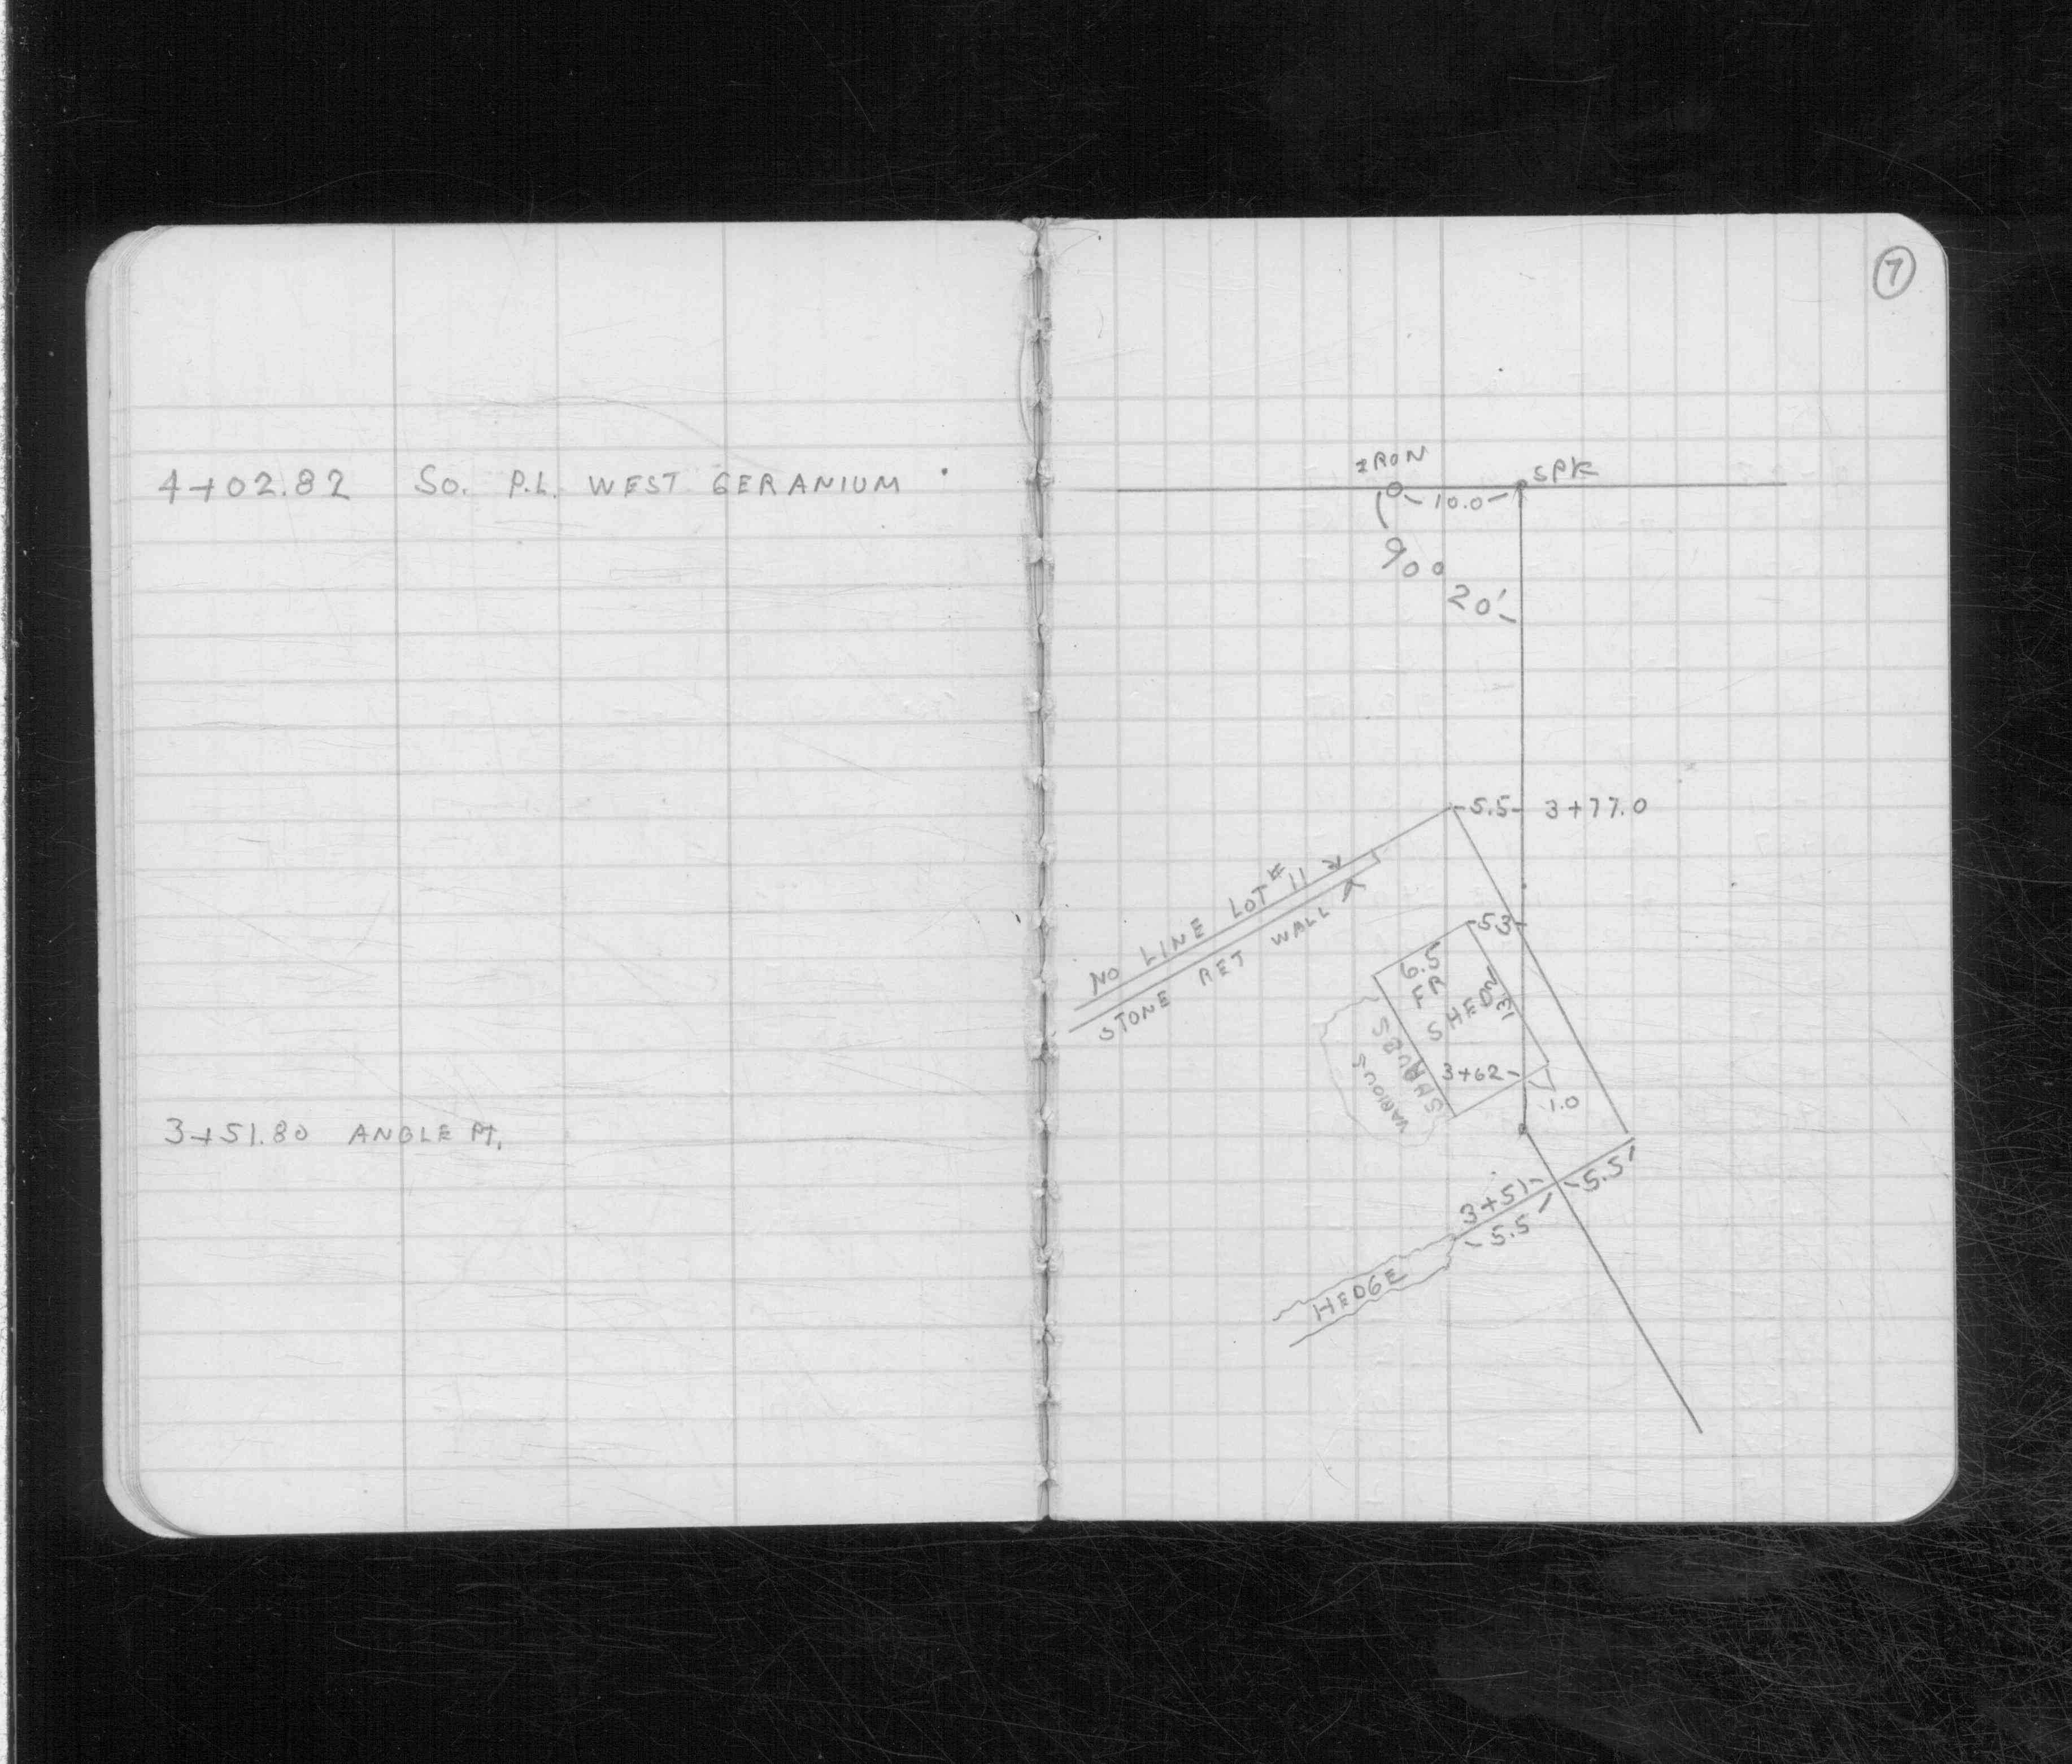 4+02.82 SO. P.L. WEST GERANIUM
3+51.80 ANGLE PT.
7
IRON
SPK
10.0
90° 20'
5.5 3+77.0
NO LINE LOT # 11
STONE RET WALL
53
6.5
FR
SHED
13.2
VARIOUS
SHRUBS
3+62
1.0
3+51
5.5
5.5
HEDGE